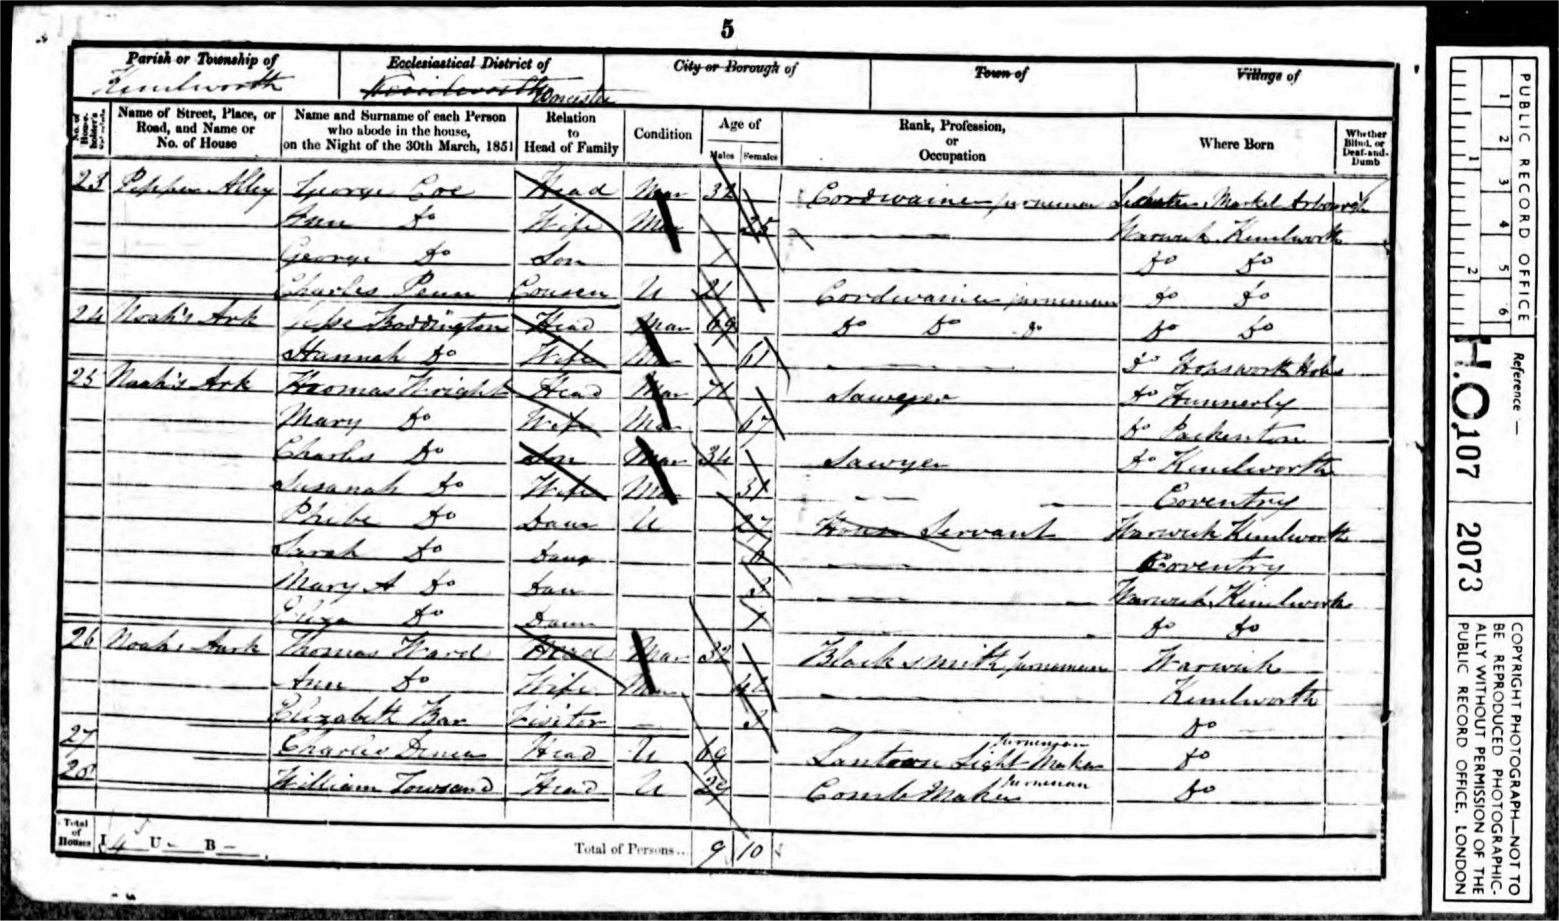 5
Parish or Township of Ecclesiastical District of City or Borough of Town of Village of
Kenilworth Kenilworth Worcester
No. of House-holder's Name of Street, Place, or Road, and Name or No. of House Name and Surname of each Person who abode in the house, on the Night of the 30th March, 1851 Relation to Head of Family Condition Age of Males Females Rank, Profession, or Occupation Where Born Whether Blind, or Deaf-and-Dumb
23 Pepper Alley George Coe Head Mar 32 Cordwainer Market
Ann Do Wife Mar 25 Warwick Kenilworth
George Do Son Do Do
Charles Cousen U 21 Cordwainer Do Do
24 Noah's Ark Boddington Head Mar 69 Do Do Do Do Do
Hannah Do Wife Mar 61 Do
25 Noah's Ark Thomas Wright Head Mar 71 Sawyer Do
Mary Do Wife Mar 67 Do Packenton
Charles Do Son Mar 34 Sawyer Do Kenilworth
Susanah Do Wife Mar 31 Coventry
Phibe Do Daur U 27 House Servant Warwick Kenilworth
Sarah Do Daur Coventry
Mary A Do Daur 3 Warwick Kenilworth
Eliza Do Daur Do Do
26 Noahs Aark Thomas Ward Head Mar 32 Black smith Warwick
Ann Do Wife Mar Kenilworth
Elizabeth Visitor 3 Do
27 Charles Head U 69 Light Maker Do
28 William Towsand Head U 29 Comb Maker Do
Total of Houses I 4 U – B – Total of Persons... 9 10
PUBLIC RECORD OFFICE
1 2 3 4 5 6
1 2
Reference :—
H.O. 107 2073
COPYRIGHT PHOTOGRAPH—NOT TO
BE REPRODUCED PHOTOGRAPHIC-
ALLY WITHOUT PERMISSION OF THE
PUBLIC RECORD OFFICE, LONDON